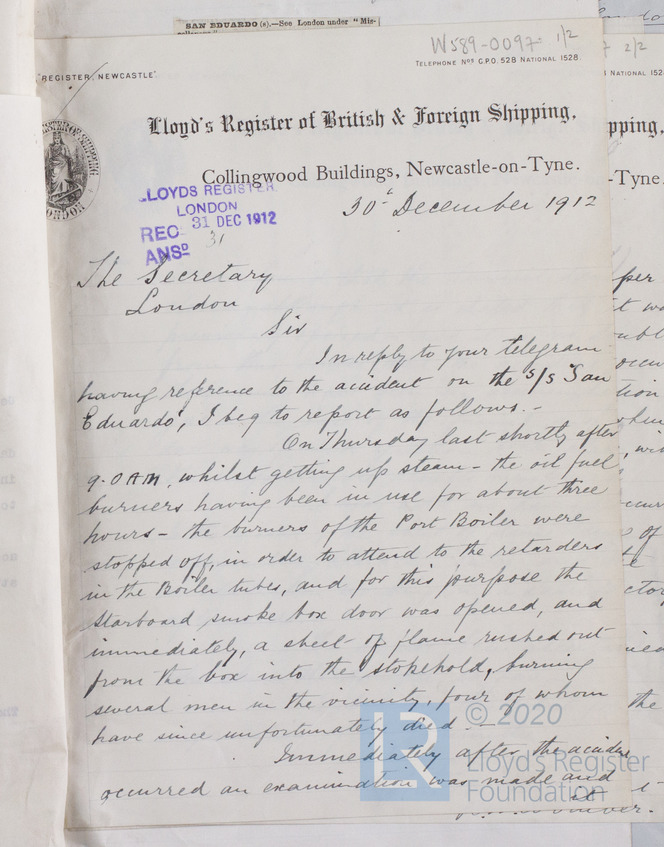 SAN EDUARDO (s).—See London under "Mis-
W589-0097 1/2
TELEPHONE Nos G.P.O. 528 NATIONAL 1528.
"REGISTER, NEWCASTLE"
Lloyd's Register of British & Foreign Shipping,
Collingwood Buildings, Newcastle-on-Tyne.
LLOYDS REGISTER
LONDON
REC 31 DEC 1912
ANSD 31
30th December 1912
The Secretary
London
Sir
In reply to your telegram
having reference to the accident on the s/s "San
Eduardo", I beg to report as follows.-
On Thursday last shortly after
9.0 AM, whilst getting up steam - the oil fuel
burners having been in use for about three
hours - the burners of the Port Boiler were
stopped off, in order to attend to the retarders
in the Boiler tubes, and for this purpose the
starboard smoke box door was opened, and
immediately, a sheet of flame rushed out
from the box into the stokehold, burning
several men in the vicinity, four of whom
have since unfortunately died.-
Immediately after the accident
occurred an examination was made and
2/2
NATIONAL 1528
pping,
-Tyne.
per
the
© 2020
Lloyd's Register
Foundation
LR